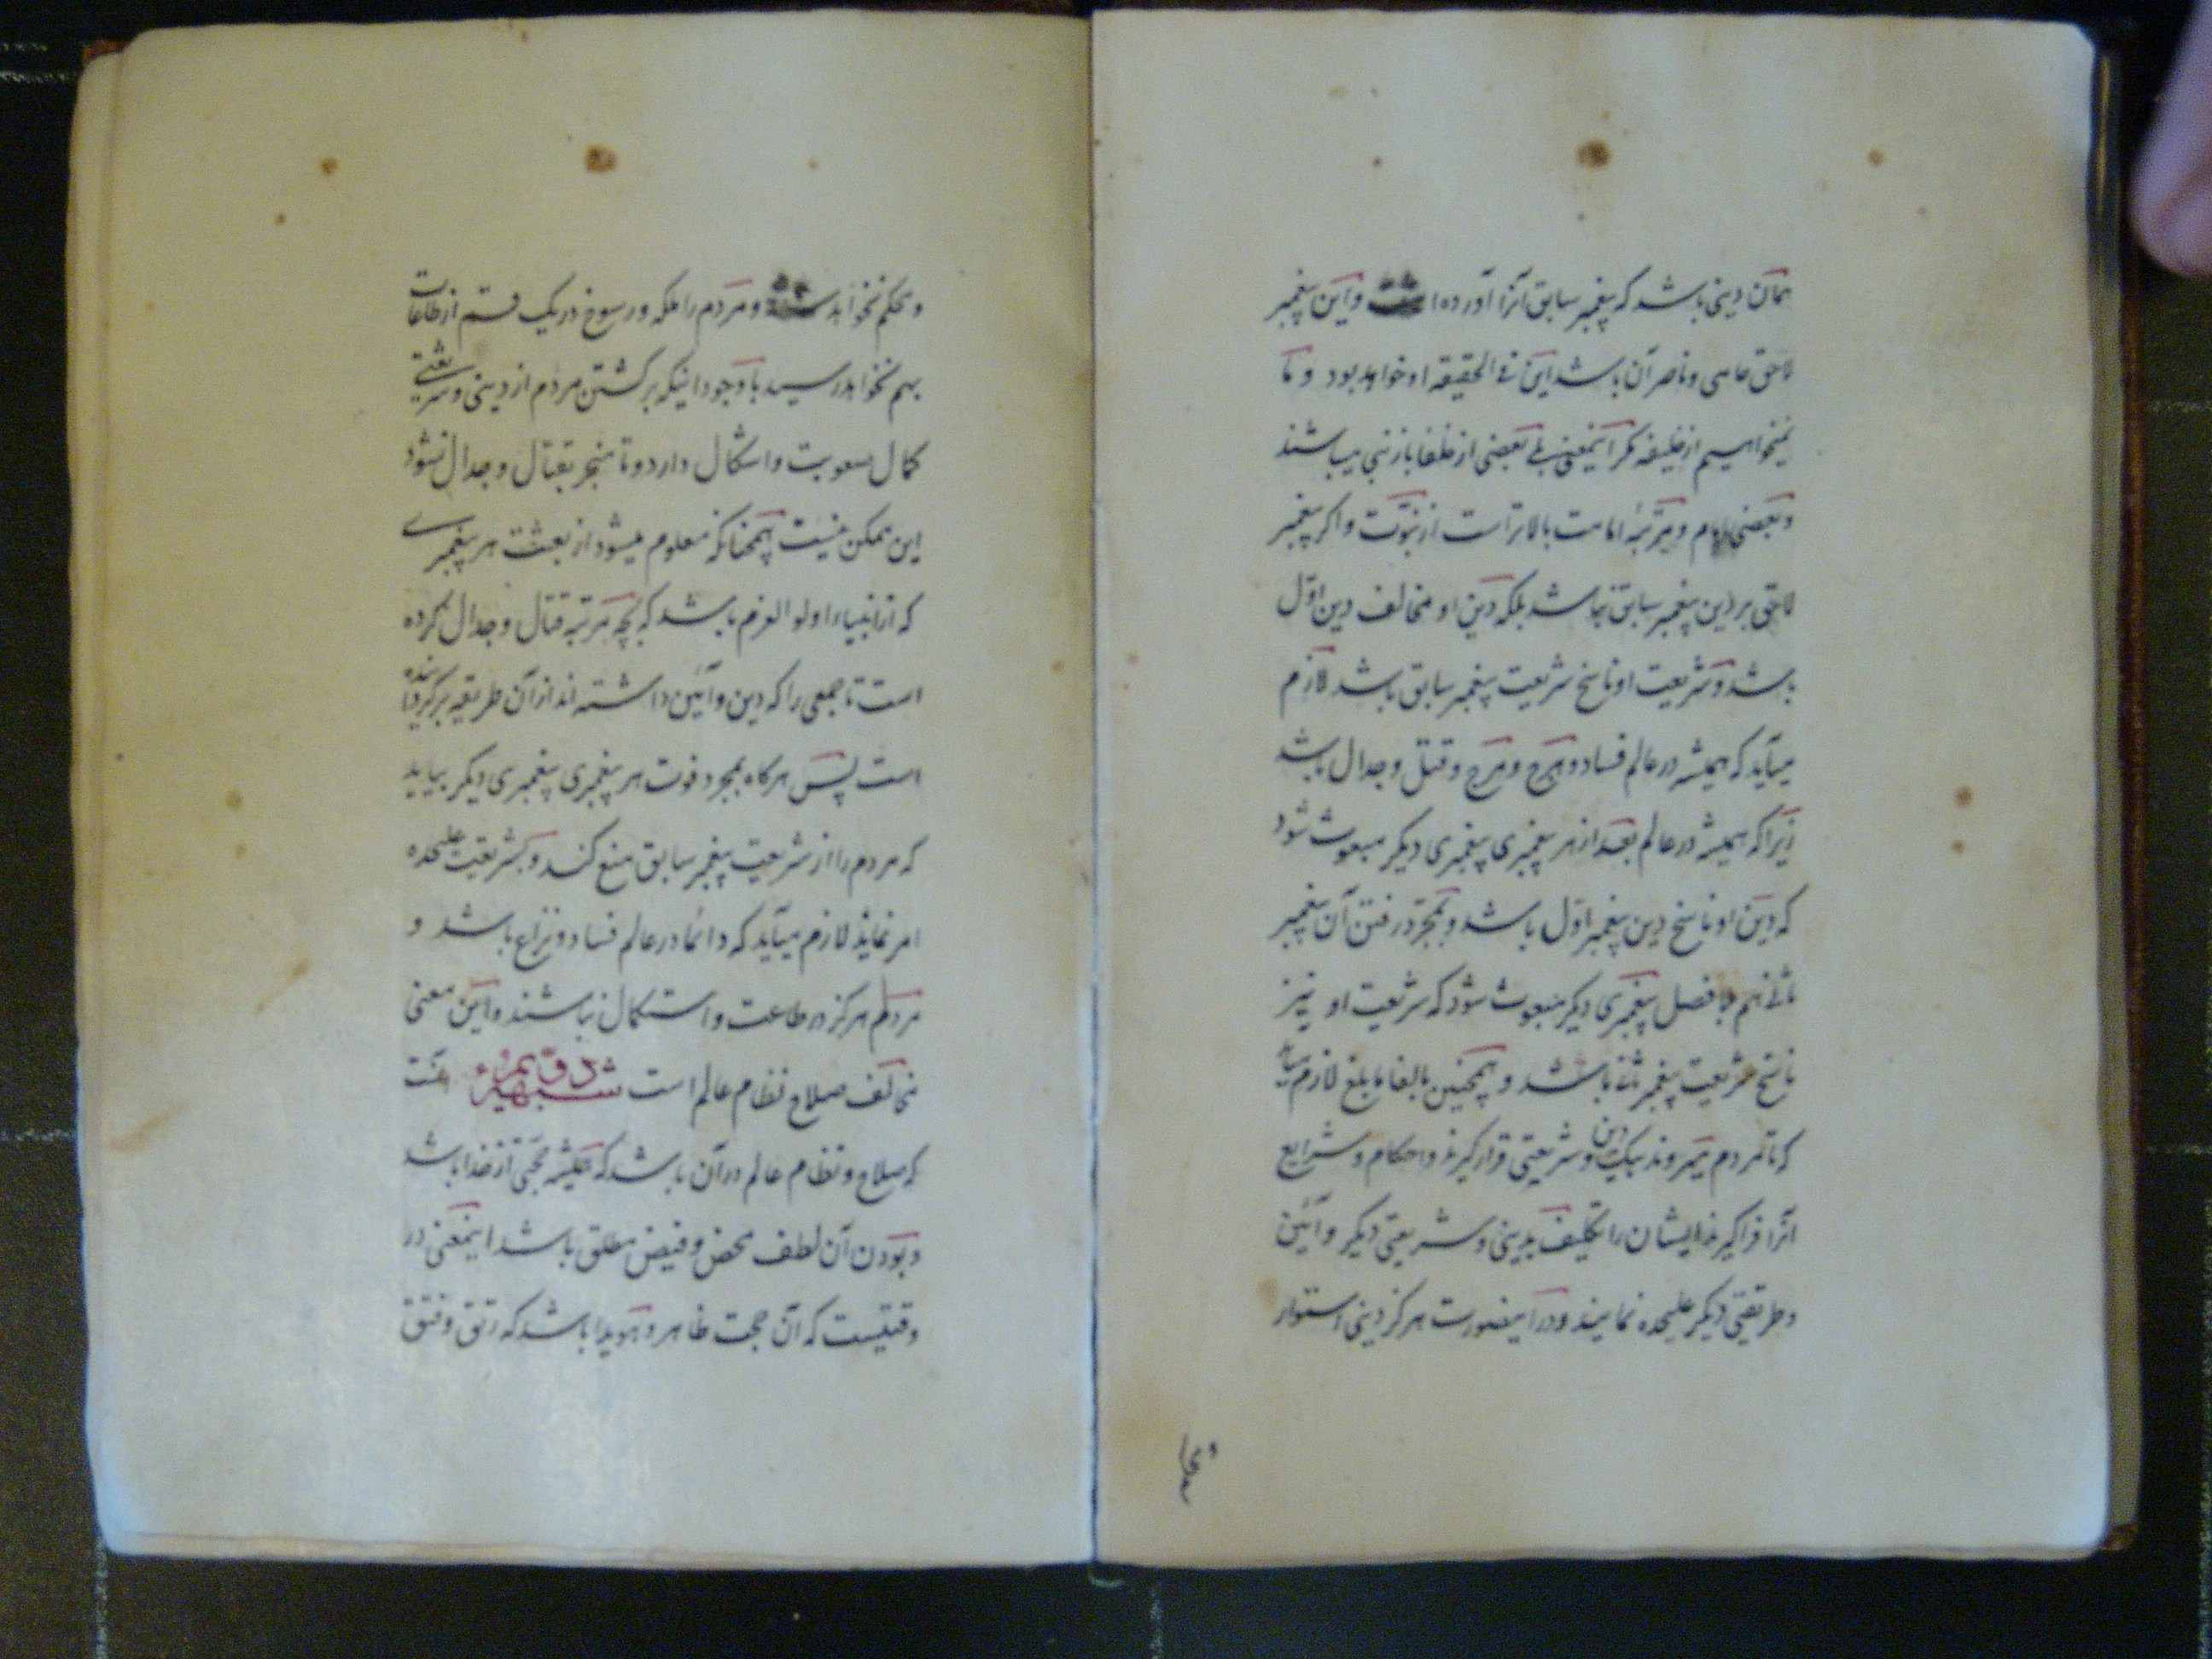 همان دینی باشد که پیغمبر سابق آنرا آورده است و این پیغمبر
لاحق حامی و ناصر آن باشد این فی الحقیقه او خواهد بود و ما
نمیخواهیم از خلیفه مکر اینمعنی بلی بعضی از خلفا باز نبی میباشند
و بعضی امام و مرتبۀ امامت بالاتر است از نبوّت و اکر پیغمبر
لاحق بر دین پیغمبر سابق نباشد بلکه دین او مخالف دین اوّل
باشد و شریعت او ناسخ شریعت پیغمبر سابق باشد لازم
میآید که همیشه در عالم فساد و هرج و مرج و قتل و جدال باشد
زیرا که همیشه در عالم بعد از هر پیغمبری پیغمبری دیکر مبعوث شود
که دین او ناسخ دین پیغمبر اوّل باشد و بمجرّد رفتن آن پیغمبر
ثانی هم بلا فصل پیغمبری دیکر مبعوث شود که شریعت او نیز
ناسخ شریعت پیغمبر ثانی باشد و همچنین بالغا ما بلغ لازم میآید
که تا مردم میروند بیک دین و شریعتی قرار کیرند و احکام و شرایع
آنرا فرا کیرند ایشان را تکلیف بدینی و شریعتی دیکر و آئین
و طریقتی دیکر علیحده نمایند و در اینصورت هرکز دینی استوار
و محکم نخواهد شد و مردم را ملکه و رسوخ در یک قسم از طاعات
بهم نخواهد رسید با وجود اینکه برکشتن مردم از دینی و شریعتی
کمال صعوبت و اشکال دارد و تا منجر بقتال و جدال نشود
این ممکن نیست همچنانکه معلوم میشود از بعثت هر پیغمبری
که از انبیاء اولو العزم باشد که بچه مرتبه قتال و جدال کرده
است تا جمعی را که دین و آئین داشته اند از آن طریقه برکردانیده
است پس هرکاه بمجرد فوت هر پیغمبری پیغمبری دیکر بیاید
که مردم را از شریعت پیغمبر سابق منع کند و بشریعت علیحده
امر نماید لازم میآید که دائما در عالم فساد و نزاع باشد و
مردم هرکز در طاعت و استکمال نباشند و این معنی
مخالف صلاح نظام عالم است شبهۀ دویم
که صلاح و نظام عالم در آن باشد که همیشه حجّتی از خدا باشد
و بودن آن لطف محض و فیض مطلق باشد اینمعنی در
وقتیست که آن حجت ظاهر و هویدا باشد که رتق و فتق